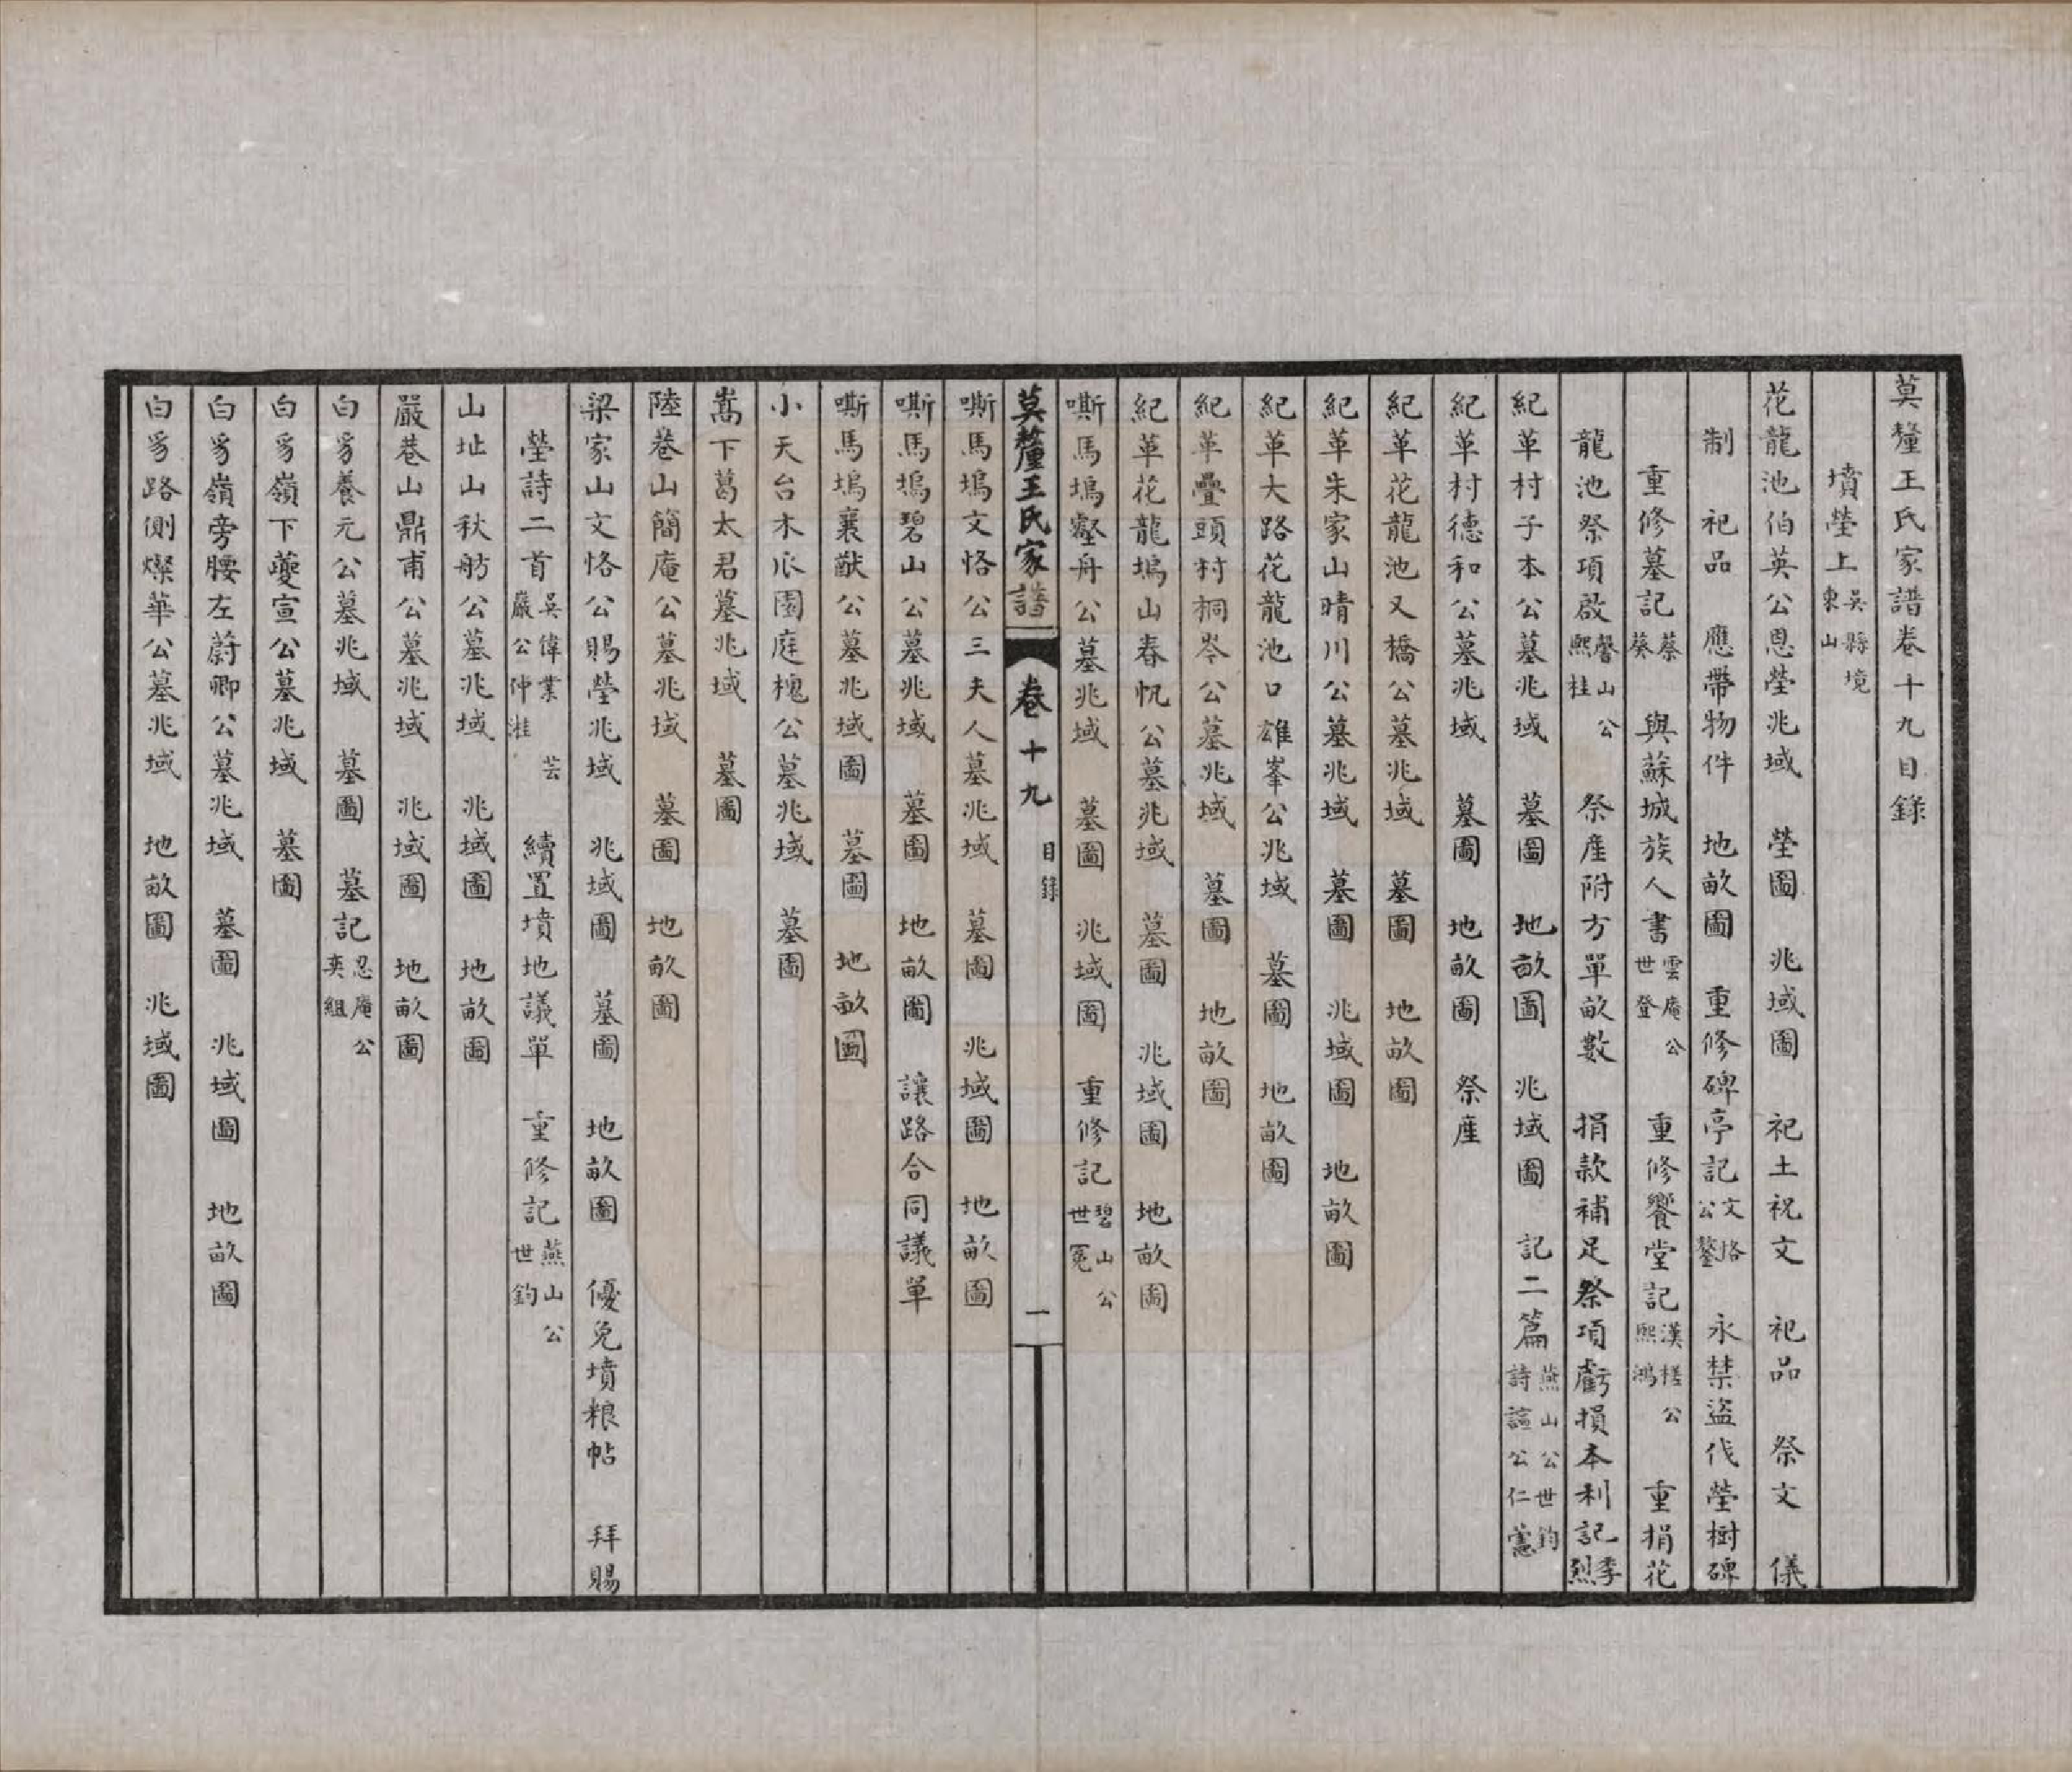 莫釐王氏家譜卷十九目錄
墳塋上 吳縣境東山
花龍池伯英公恩塋兆域　塋圖　兆域圖　祀土祝文　祀品　祭文　儀
制　祀品　應帶物件　地畝圖　重修碑亭記 文恪公鏊　永禁盜伐塋樹碑
重修墓記 蔡葵　與蘇城族人書 雲庵公世登　重修饗堂記 漢槎公熙鴻　重捐花
龍池祭項啟 馨山公熙桂　祭產附方單畝數　捐款補足祭項虧損本利記 季烈
紀革村子本公墓兆域　墓圖　地畝圖　兆域圖　記二篇 燕山公世鈞詩諠公仁憲
紀革村德和公墓兆域　墓圖　地畝圖　祭產
紀革花龍池又橋公墓兆域　墓圖　地畝圖
紀革朱家山晴川公墓兆域　墓圖　兆域圖　地畝圖
紀革大路花龍池口雄峯公兆域　墓圖　地畝圖
紀革疊頭村桐岑公墓兆域　墓圖　地畝圖
紀革花龍塢山春帆公墓兆域　墓圖　兆域圖　地畝圖
嘶馬塢壑舟公墓兆域　墓圖　兆域圖　重修記 碧山公世冕
莫釐王氏家譜　卷十九　目錄　一
嘶馬塢文恪公三夫人墓兆域　墓圖　兆域圖　地畝圖
嘶馬塢碧山公墓兆域　墓圖　地畝圖　讓路合同議單
嘶馬塢襄猷公墓兆域圖　墓圖　地畝圖
小天台木瓜園庭槐公墓兆域　墓圖
嵩下葛太君墓兆域　墓圖
陸巷山簡庵公墓兆域　墓圖　地畝圖
梁家山文恪公賜塋兆域　兆域圖　墓圖　地畝圖　優免墳粮帖　拜賜
塋詩二首 吳偉業　芸巖公仲湝　續置墳地議單　重修記 燕山公世鈞
山址山秋舫公墓兆域　兆域圖　地畝圖
嚴巷山鼎甫公墓兆域　兆域圖　地畝圖
白豸養元公墓兆域　墓圖　墓記 忍庵公奕組
白豸嶺下蘷宣公墓兆域　墓圖
白豸嶺旁腰左蔚卿公墓兆域　墓圖　兆域圖　地畝圖
白豸路側燦華公墓兆域　地畝圖　兆域圖